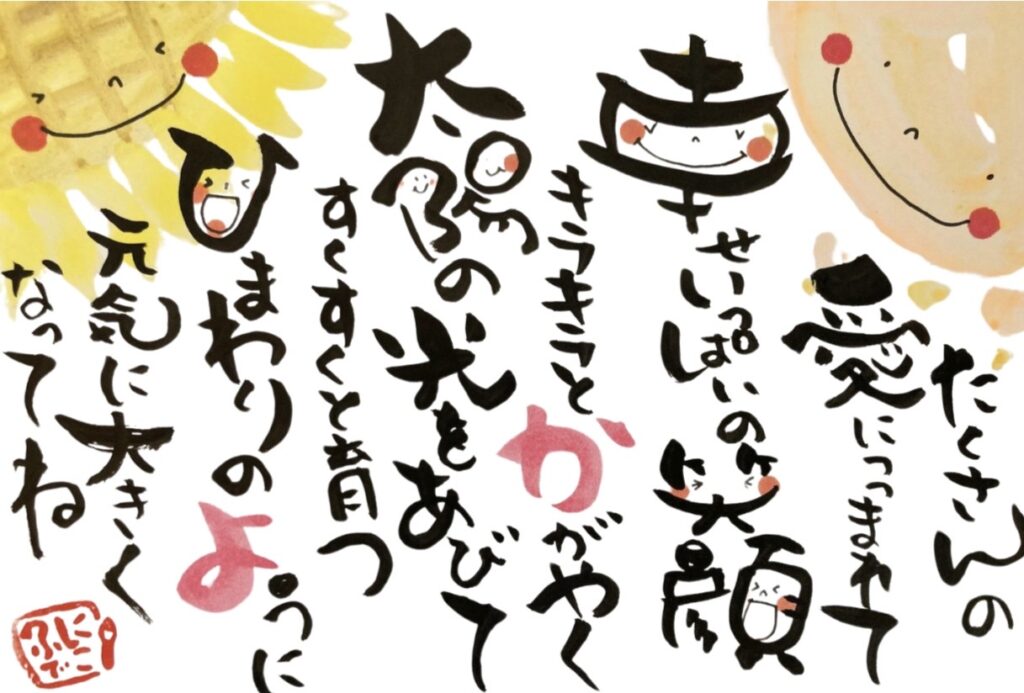 たくさんの
愛につつまれて
幸せいっぱいの笑顔
きらきらと
かがやく
太陽の光をあびて
すくすくと育つ
ひまわりのように
元気に大きく
なってね